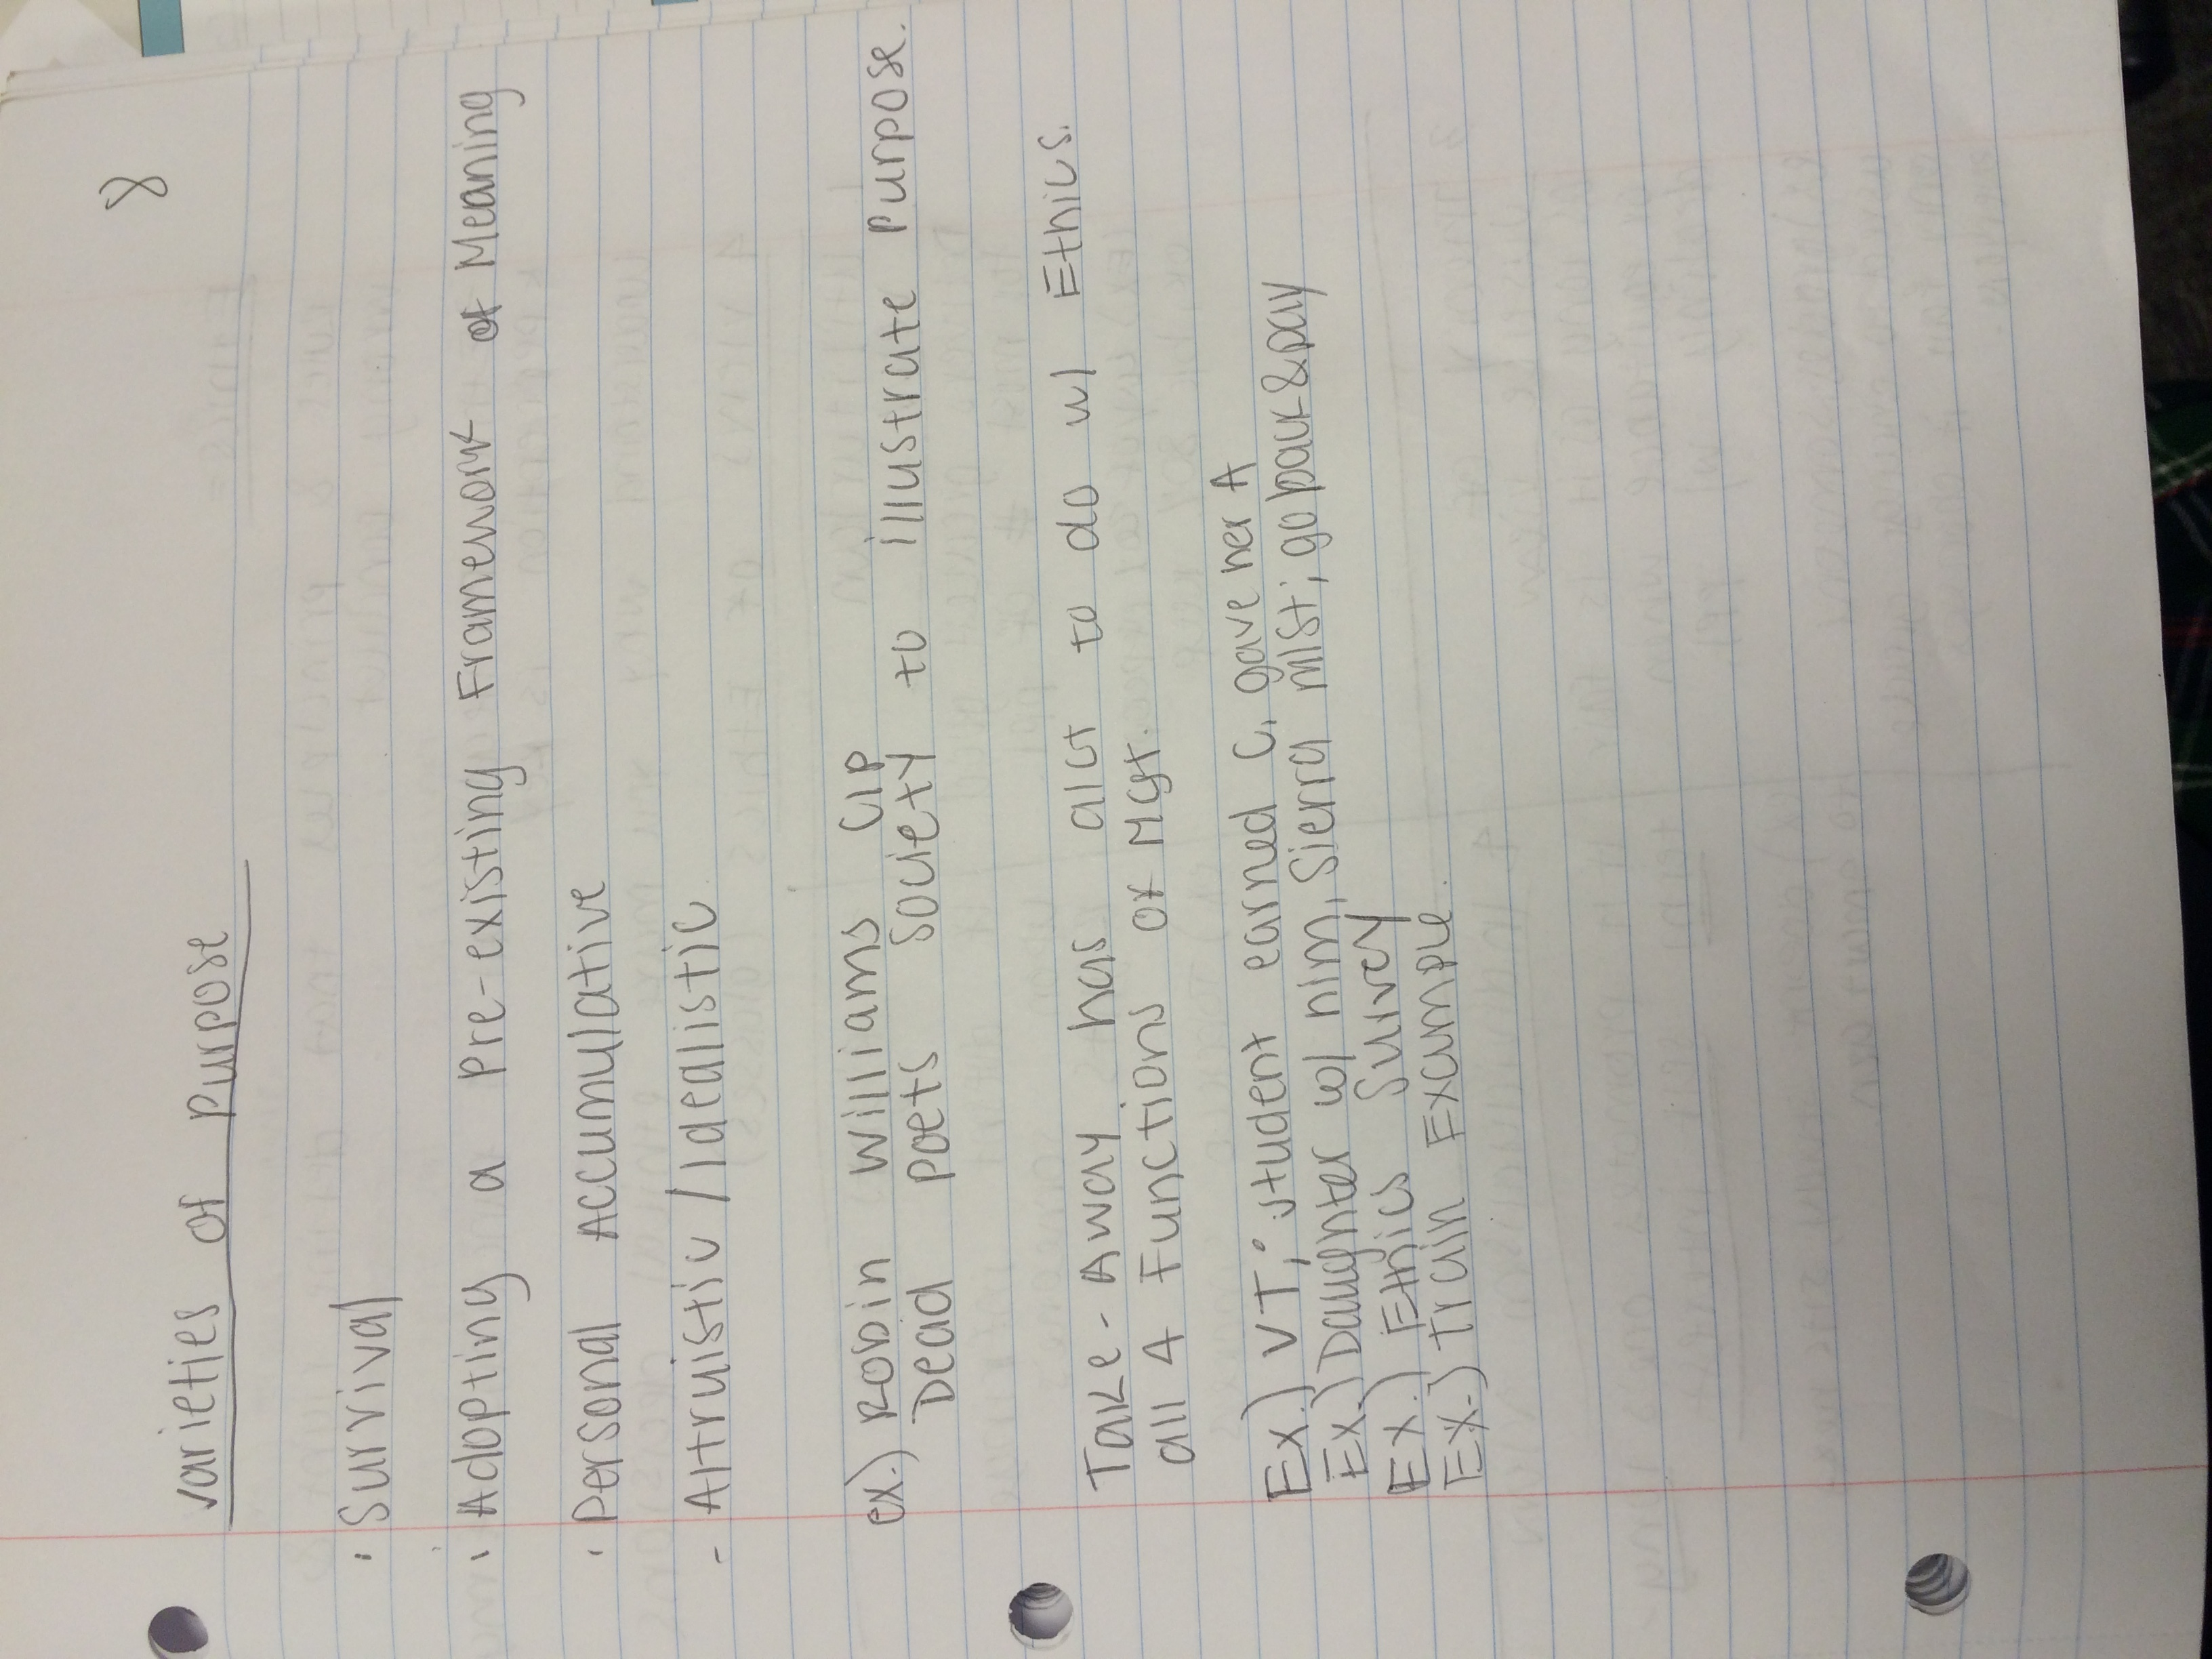 8
Varieties of Purpose
· Survival
· Adopting a Pre-existing Framework of Meaning
· Personal Accumulative
- Altruistic / Idealistic
ex.) Robin Williams Clip
Dead Poets Society to illustrate Purpose.
Take-Away has alot to do w/ Ethics.
all 4 Functions of Mgt.
Ex.) VT; student earned C, gave her A
Ex.) Daughter w/ him, Sierra Mist; go back & pay
Ex.) Ethics Survey
Ex.) Train Example.